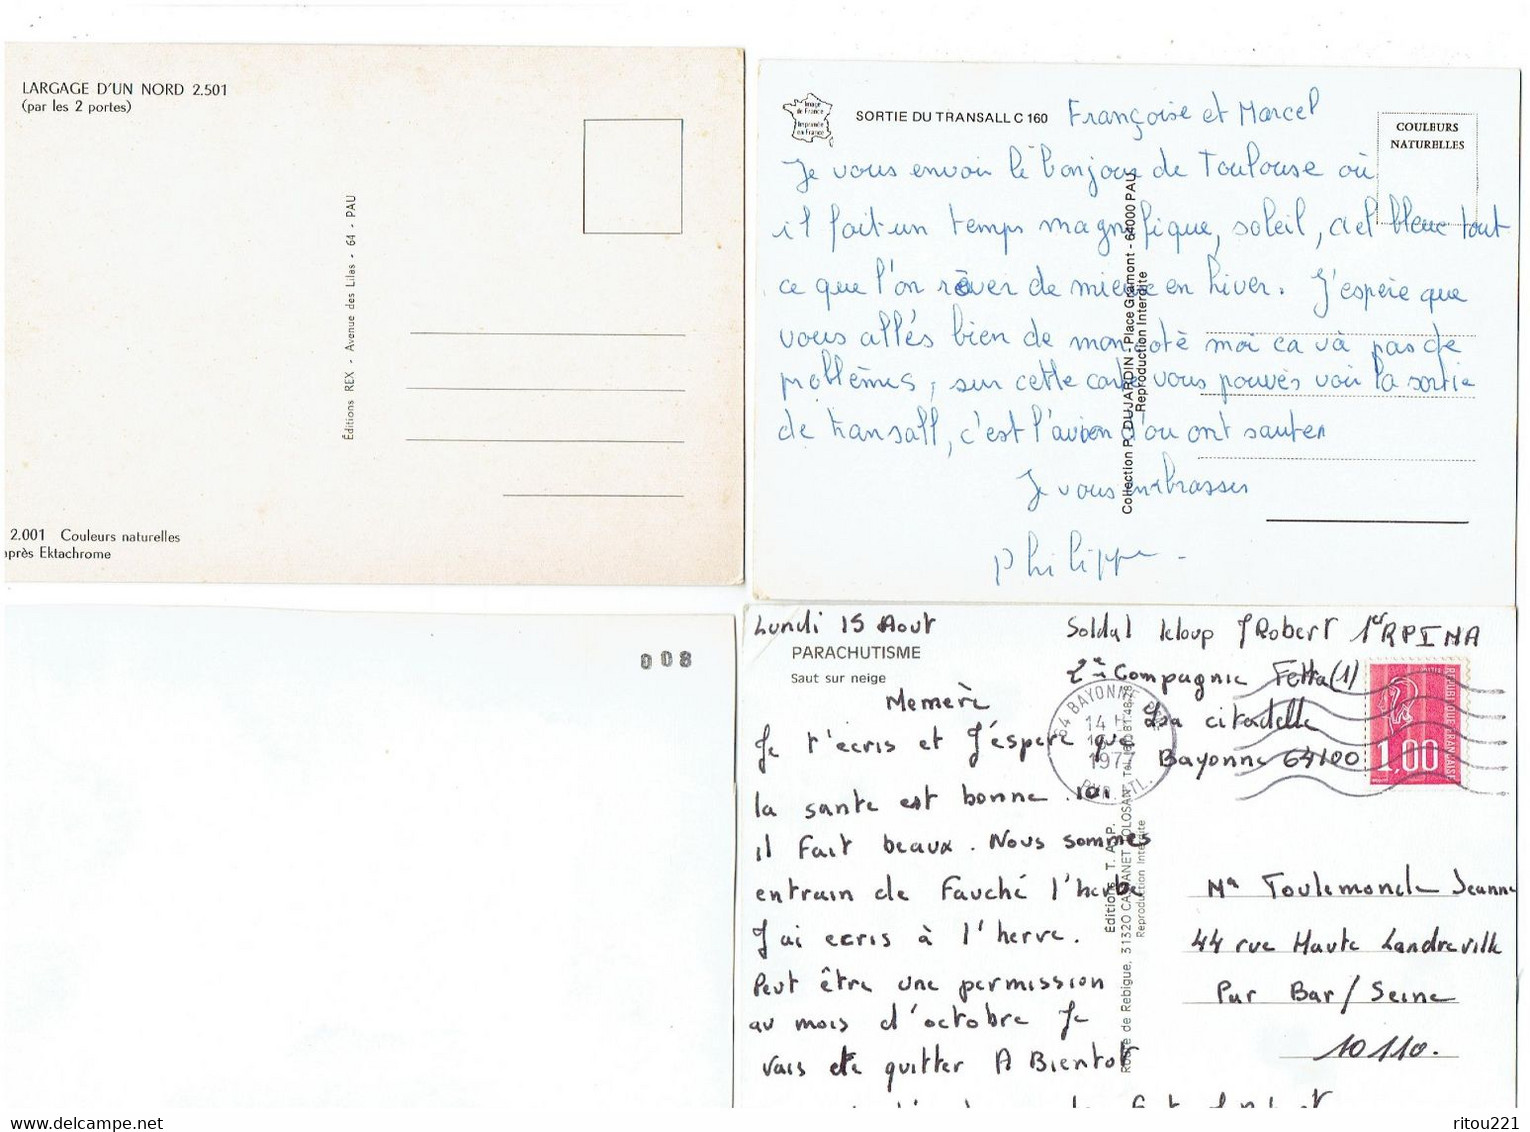 LARGAGE D'UN NORD 2.501
(par les 2 portes)
Éditions REX - Avenue des Lilas - 64 - PAU
2.001 Couleurs naturelles
après Ektachrome
Image
de France
Imprimée
en France
SORTIE DU TRANSALL C 160
COULEURS
NATURELLES
Françoise et Marcel
Je vous envoi le bonjour de Toulouse où
il fait un temps magnifique, soleil, ciel bleue tout
ce que l'on rêver de mieux en hiver. J'espère que
vous allés bien de mon coté moi ca và pas de
problèmes, sur cette carte vous pouvés voir la sortie
de transall, c'est l'avion d'ou ont sauter
Je vous embrasser
Philippe -
Collection P. DUJARDIN - Place Gramont - 64000 PAU
Reproduction Interdite
008
Lundi 15 Aout
PARACHUTISME
Saut sur neige
Soldat leloup J Robert 1er RPIMA
2e Compagnie Fetta (1)
La citadelle
Bayonne 64100
64 BAYONNE
14 H
1977
REPUBLIQUE FRANÇAISE
1,00
Memerè
Je t'ecris et J'éspere que
la sante est bonne. ici
il fait beaux. Nous sommes
entrain de Fauché l'herbe
J'ai ecris à l'herve.
Peut être une permission
au mois d'octobre Je
vais te quitter A Bientot
Éditions T. A. P.
Route de Rebigue, 31320 CASTANET TOLOSAN
Reproduction Interdite
Ma Toulemonde Jeanne
44 rue Haute Landreville
Par Bar/Seine
10110.
ritou221